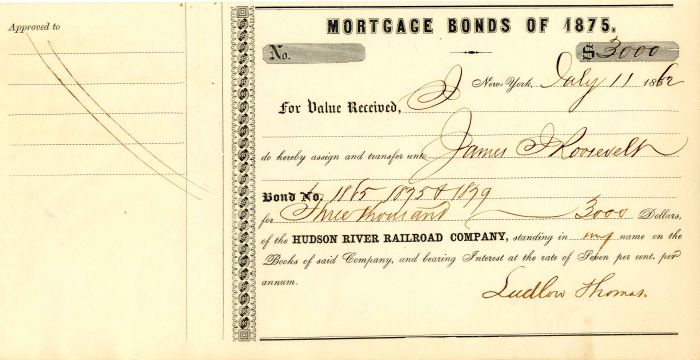 Approved to
MORTGAGE BONDS OF 1875.
No.
$ 3000
New-York, July 11 1862
For Value Received, I
do hereby assign and transfer unto James I Roosevelt
Bond No. 1865 1875 & 1879
for Three thousand 3000 Dollars,
of the HUDSON RIVER RAILROAD COMPANY, standing in my name on the
Books of said Company, and bearing Interest at the rate of Seven per cent. per
annum.
Ludlow Thomas.